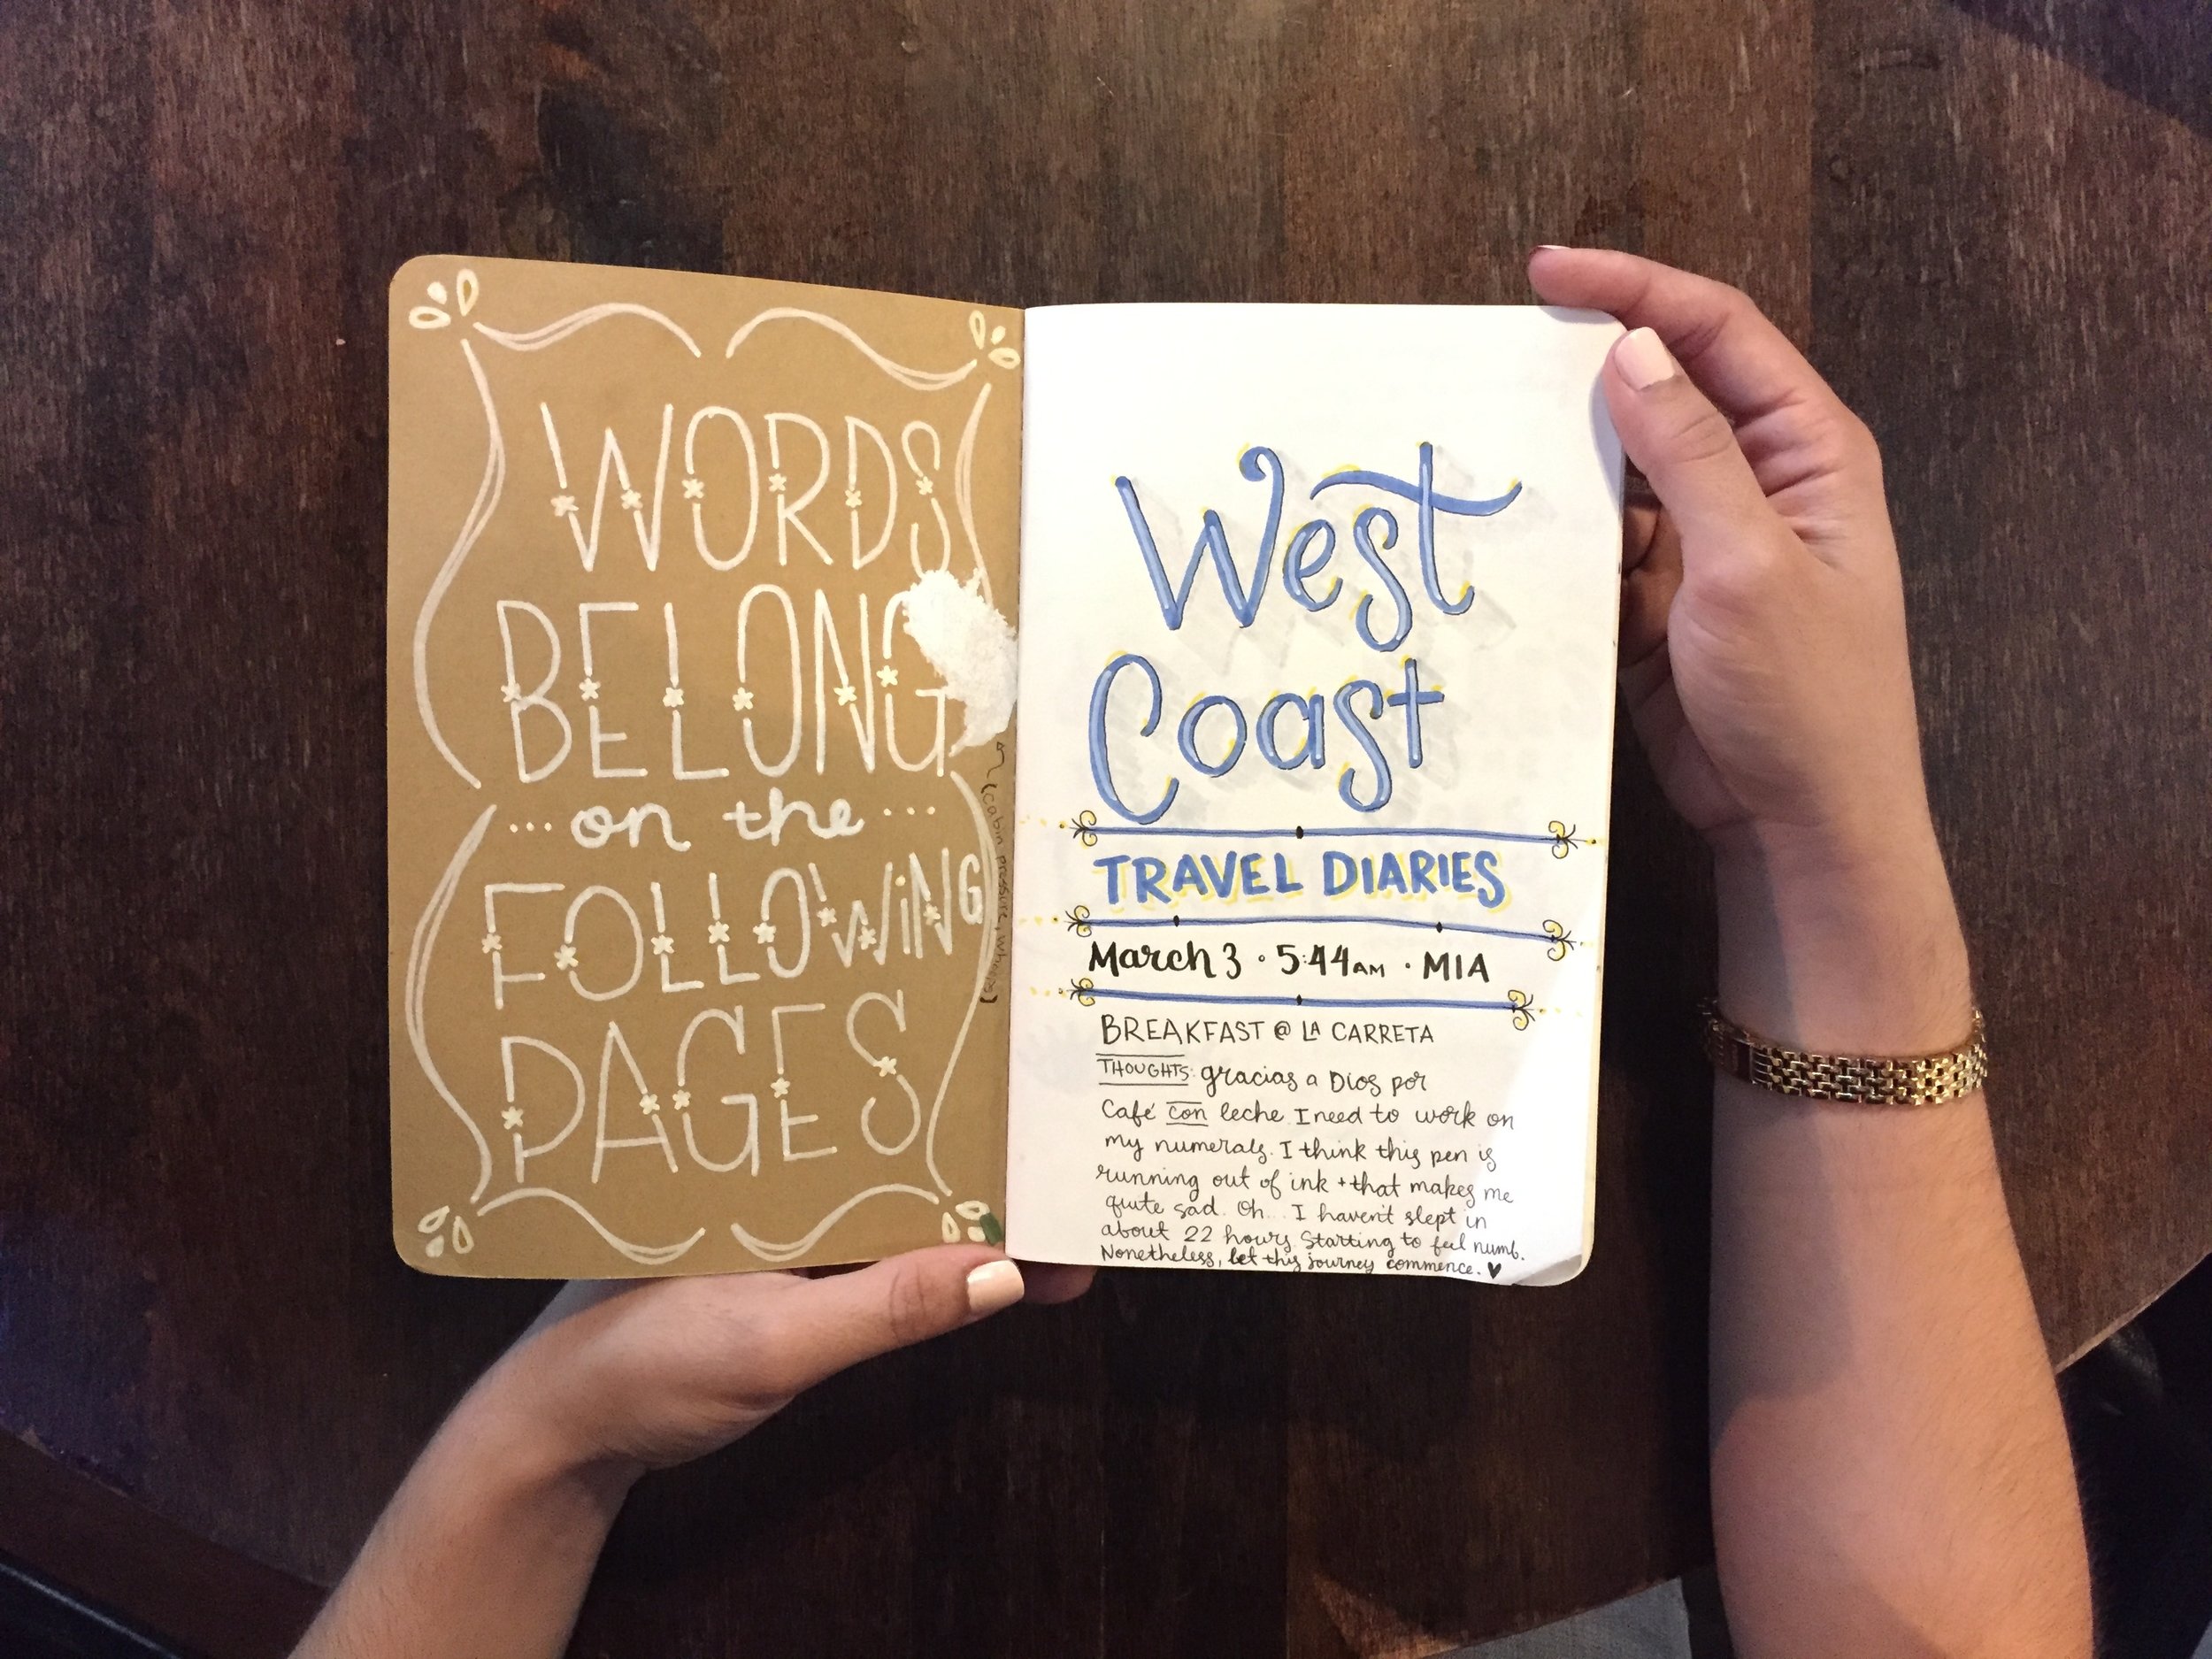 WORDS
BELONG
... on the ...
FOLLOWiNG
PAGES
(cabin pressure, whoops)
West
Coast
TRAVEL DIARIES
March 3 · 5:44AM · MIA
BREAKFAST @ LA CARRETA
THOUGHTS: gracias a Dios por
Café con leche I need to work on
my numerals. I think this pen is
running out of ink + that makes me
quite sad. Oh... I haven't slept in
about 22 hours. Starting to feel numb.
Nonetheless, let this journey commence. ♥